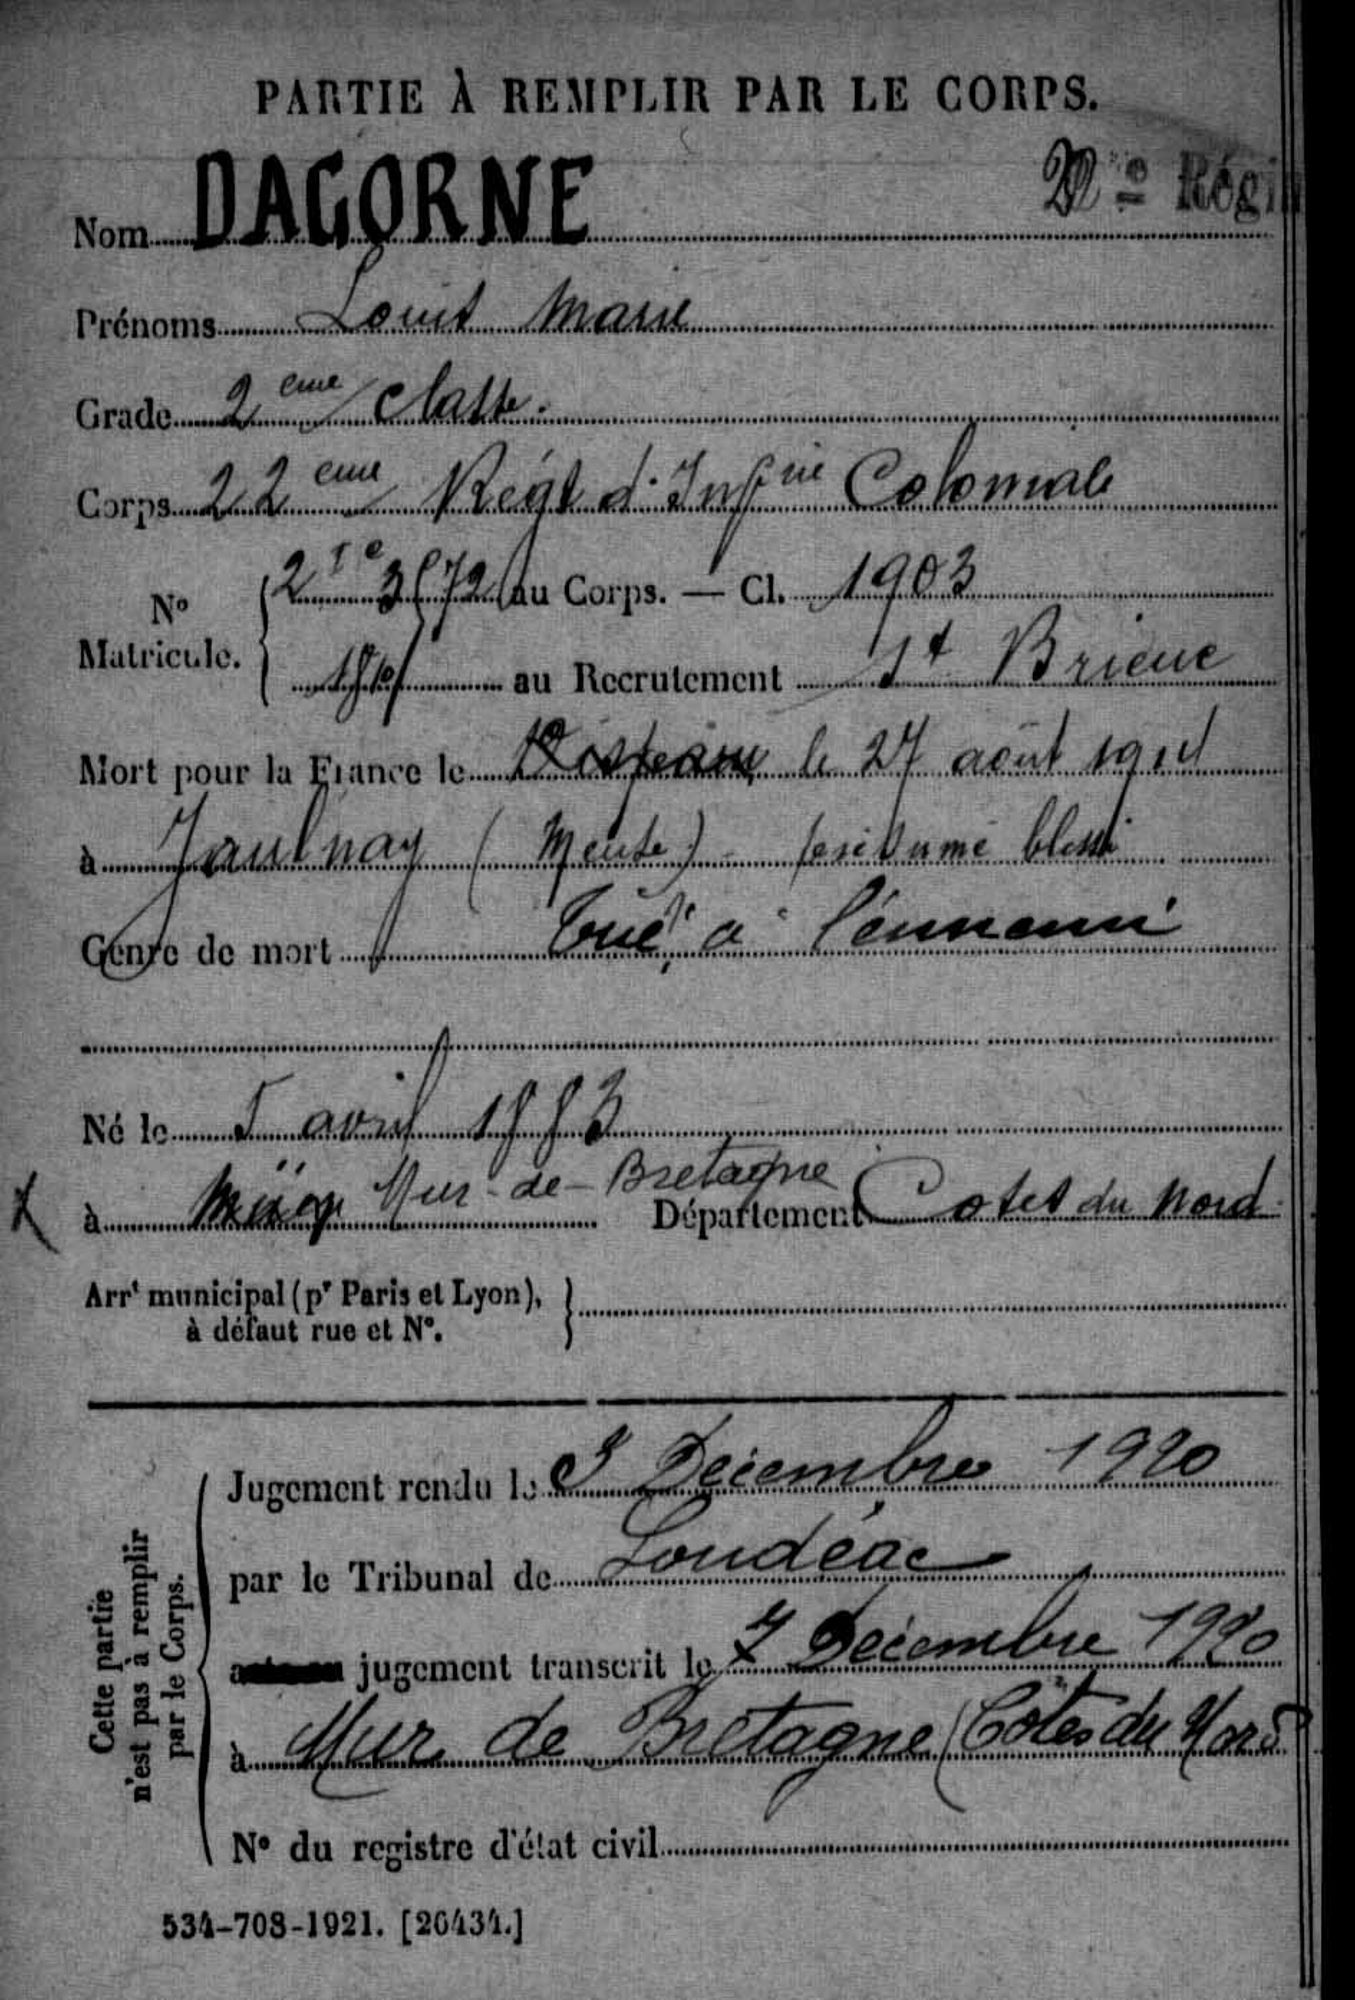 PARTIE À REMPLIR PAR LE CORPS.
22e Régi
Nom DAGORNE
Prénoms Louis Marie
Grade 2 eme classe.
Corps 22 eme Régt d'Infrie Coloniale
N° Matricule.
au Corps. — Cl. 1903
au Recrutement St Brieuc
Mort pour la France le le 27 août 1914
à Jaulnay (Meuse) présumé blessé
Genre de mort Tué à l'ennemi
Né le 5 avril 1883
à Mur-de-Bretagne Département Cotes du Nord
Arrt municipal (pr Paris et Lyon),
à défaut rue et N°.
Cette partie
n'est pas à remplir
par le Corps.
Jugement rendu le 3 Décembre 1920
par le Tribunal de Loudéac
jugement transcrit le 7 Décembre 1920
à Mur de Bretagne (Côtes du Nord
N° du registre d'état civil
534-708-1921. [26434.]